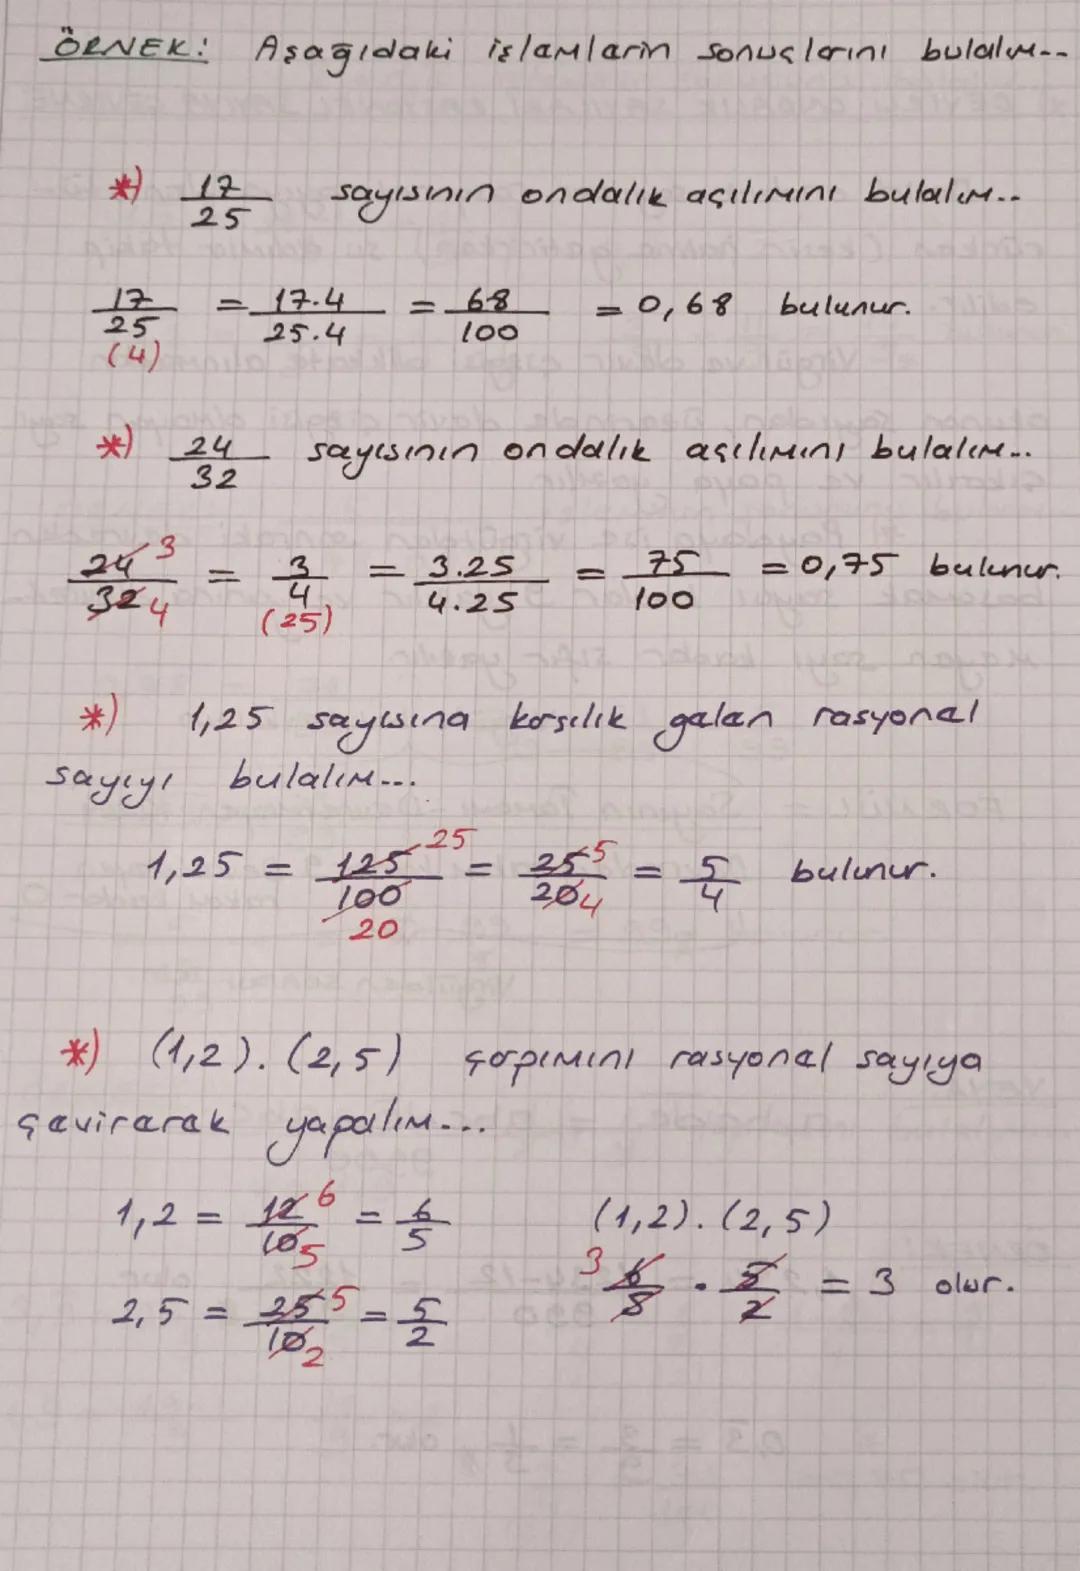 ÖRNEK: Aşağıdaki işlemlerin sonuçlarını bulalım..
*) 17/25 sayısının ondalık açılımını bulalım..
17/25 (4) = 17.4/25.4 = 68/100 = 0,68 bulunur.
*) 24/32 sayısının ondalık açılımını bulalım..
24 3/32 4 = 3/4 (25) = 3.25/4.25 = 75/100 = 0,75 bulunur.
*) 1,25 sayısına karşılık gelen rasyonel
sayıyı bulalım...
1,25 = 125 25/100 20 = 25 5/20 4 = 5/4 bulunur.
*) (1,2).(2,5) çarpımını rasyonel sayıya
çevirerek yapalım...
1,2 = 12 6/10 5 = 6/5
2,5 = 25 5/10 2 = 5/2
(1,2).(2,5)
3 6/5 . 5/2 = 3 olur.